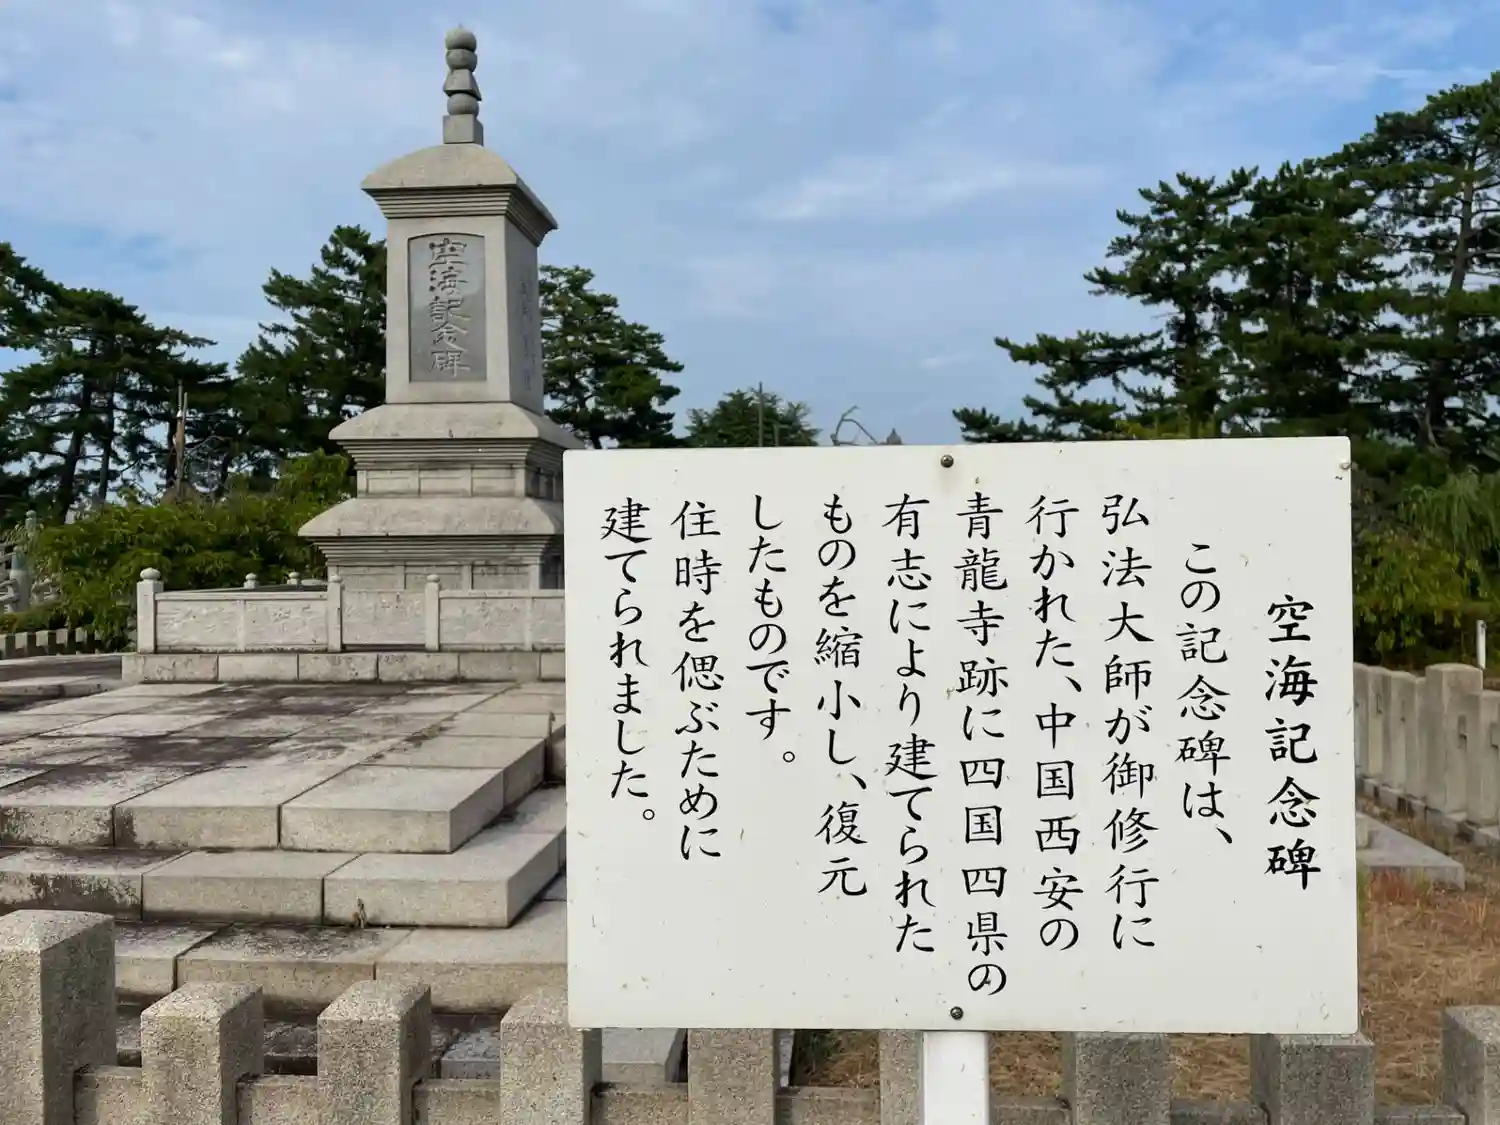 空海記念碑
空海記念碑
この記念碑は、
弘法大師が御修行に
行かれた、中国西安の
青龍寺跡に四国四県の
有志により建てられた
ものを縮小し、復元
したものです。
住時を偲ぶために
建てられました。